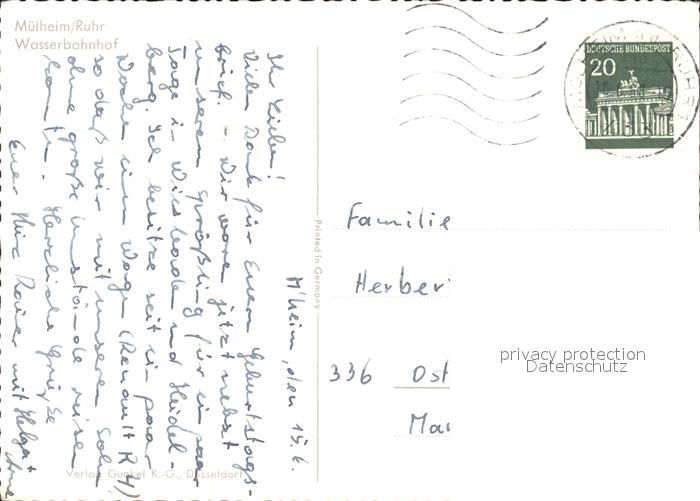 Mülheim/Ruhr
Wasserbahnhof
M'heim, den 15.6.
Ihr Lieben!
Vielen Dank für Euern Geburtstags-
brief. - Wir waren jetzt nebst
unserem Sprößling für ein paar
Tage in Wiesbaden und Heidel-
berg. Ich besitze seit ein paar
Wochen einen Wagen (Renault R 4)
so daß wir mit unserem Sohn
ohne große Umstände reisen
konnten. Herzliche Grüße
Euer Rainer mit Helga +
Verlag Gunkel K.-G., Düsseldorf
Printed in Germany
DEUTSCHE BUNDESPOST
20
Familie
Herber
336 Ost
Mar
privacy protection
Datenschutz